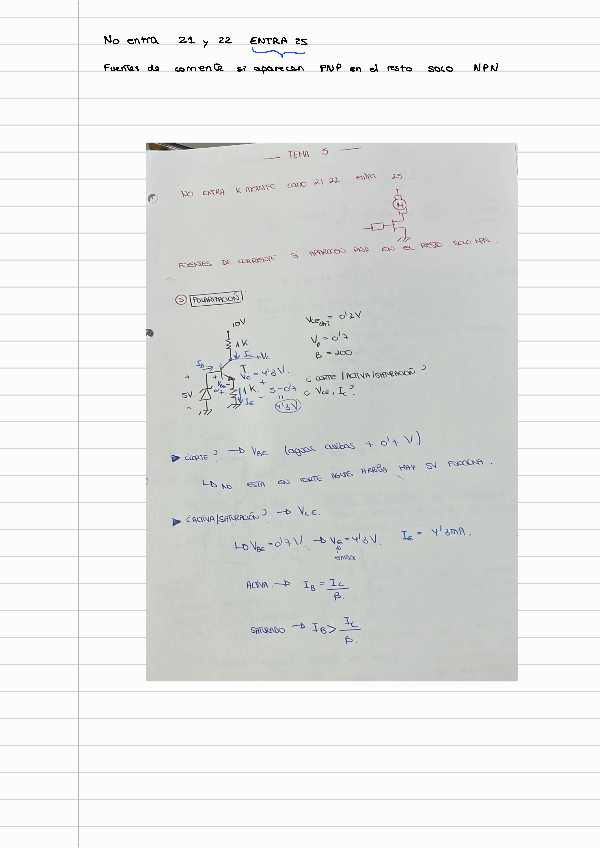 No entra 21 y 22 ENTRA 25
Fuentes de corriente si aparecen PNP en el resto SOLO NPN
— TEMA 5 —
NO ENTRA COMO 21 22 entra 25
M
FUENTES DE CORRIENTE SI APARECEN PNP EN EL RESTO SOLO NPN.
5 POLARIZACIÓN
10V
1K
VCEsat = 0'2V
Vβ = 0'7
β = 200
¿CORTE/ACTIVA/SATURACIÓN?
¿ VCE, IC?
IB
IC
VE = 4'3V.
5V
1K
IE
5-0'7
=
4'3V
► ¿CORTE? → VBE (aguas arribas + 0'7 V)
↳ NO ESTA EN CORTE AGUAS ARRIBA HAY 5V FUNCIONA.
► ¿ACTIVA/SATURACIÓN? → VCE.
↳ VBE=0'7V. → VE=4'3V. IE = 4'3mA.
emisor
ACTIVA → IB = IC/β.
SATURADO → IB > IC/β.